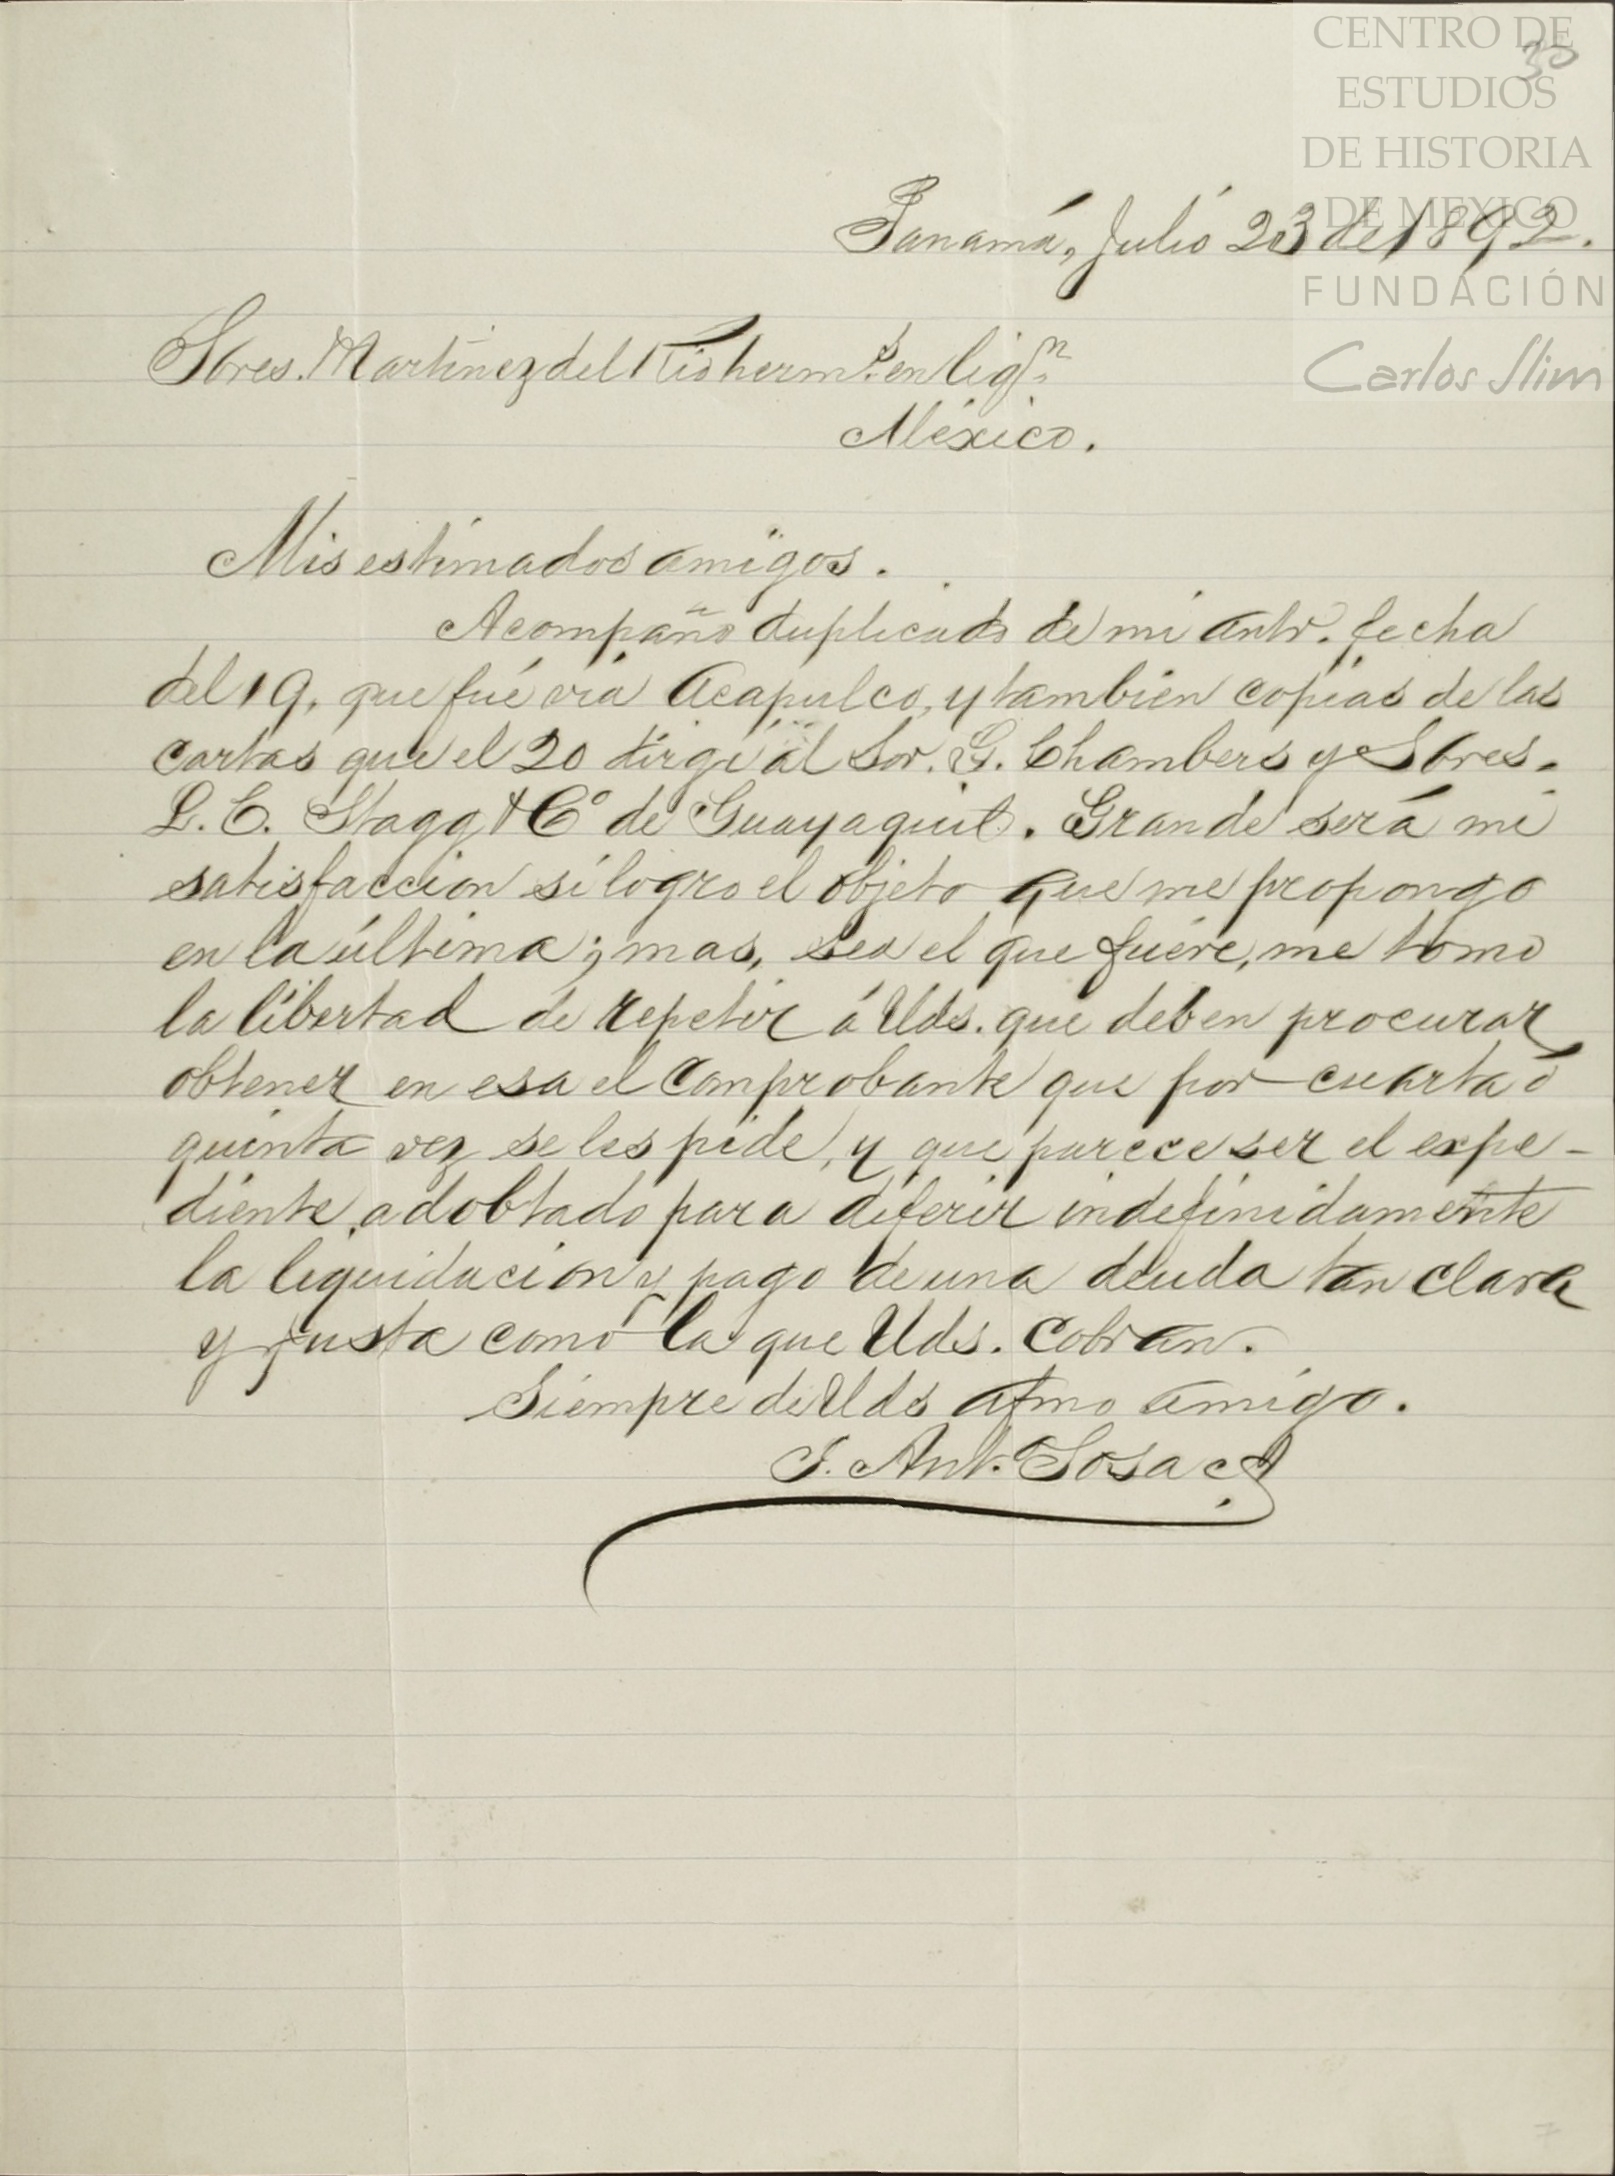 CENTRO DE
ESTUDIOS
DE HISTORIA
DE MEXICO
FUNDACIÓN
Carlos Slim
33
Panamá, Julio 23 de 1892.
Sores. Martinez del Rio hermS. en liqn.
México.
Mis estimados amigos.
Acompaño duplicado de mi antr. fecha
del 19, que fué via Acapulco, y tambien copias de las
cartas que el 20 dirgí al Sor. G. Chambers y Sores.
L. C. Stagg & Co de Guayaquil. Grande será mi
satisfaccion si logro el objeto que me propongo
en la última; mas, sea el que fuere, me tomo
la libertad de repetir á Uds. que deben procurar
obtener en esa el comprobante que por cuarta ó
quinta vez se les pide, y que parece ser el expe-
diente adobtado para diferir indefinidamente
la liquidacion y pago de una deuda tan clara
y justa como la que Uds. cobran.
Siempre de Uds afmo amigo.
J. Ant. Sosa